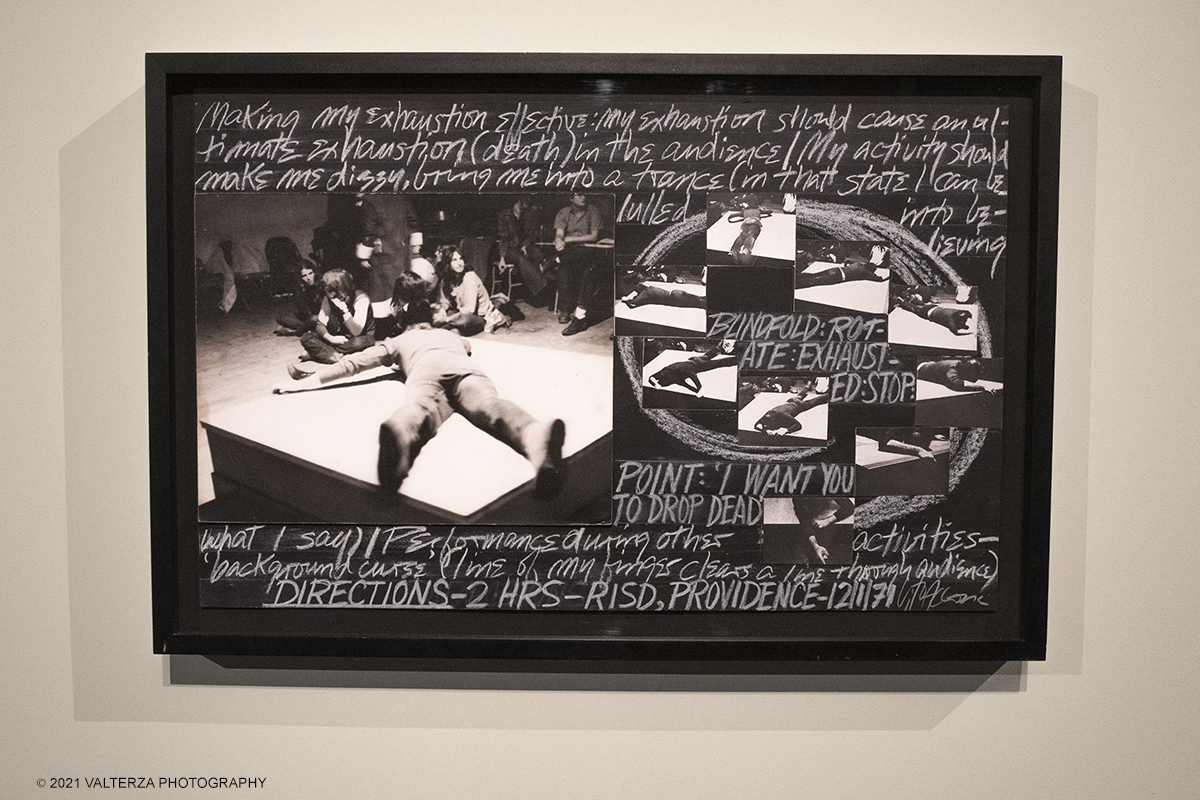 Making my exhaustion effective: my exhaustion should cause an ul-
timate exhaustion (death) in the audience / My activity should
make me dizzy, bring me into a trance (in that state I can be
lulled into be-
lieving
BLINDFOLD: ROT-
ATE: EXHAUST-
ED: STOP:
POINT: 'I WANT YOU
TO DROP DEAD'
what I say) / Performance during other activities-
background curse (line of my finger clears a line through audience)
DIRECTIONS-2 HRS-RISD, PROVIDENCE-12/1/71 V. Acconci
© 2021 VALTERZA PHOTOGRAPHY